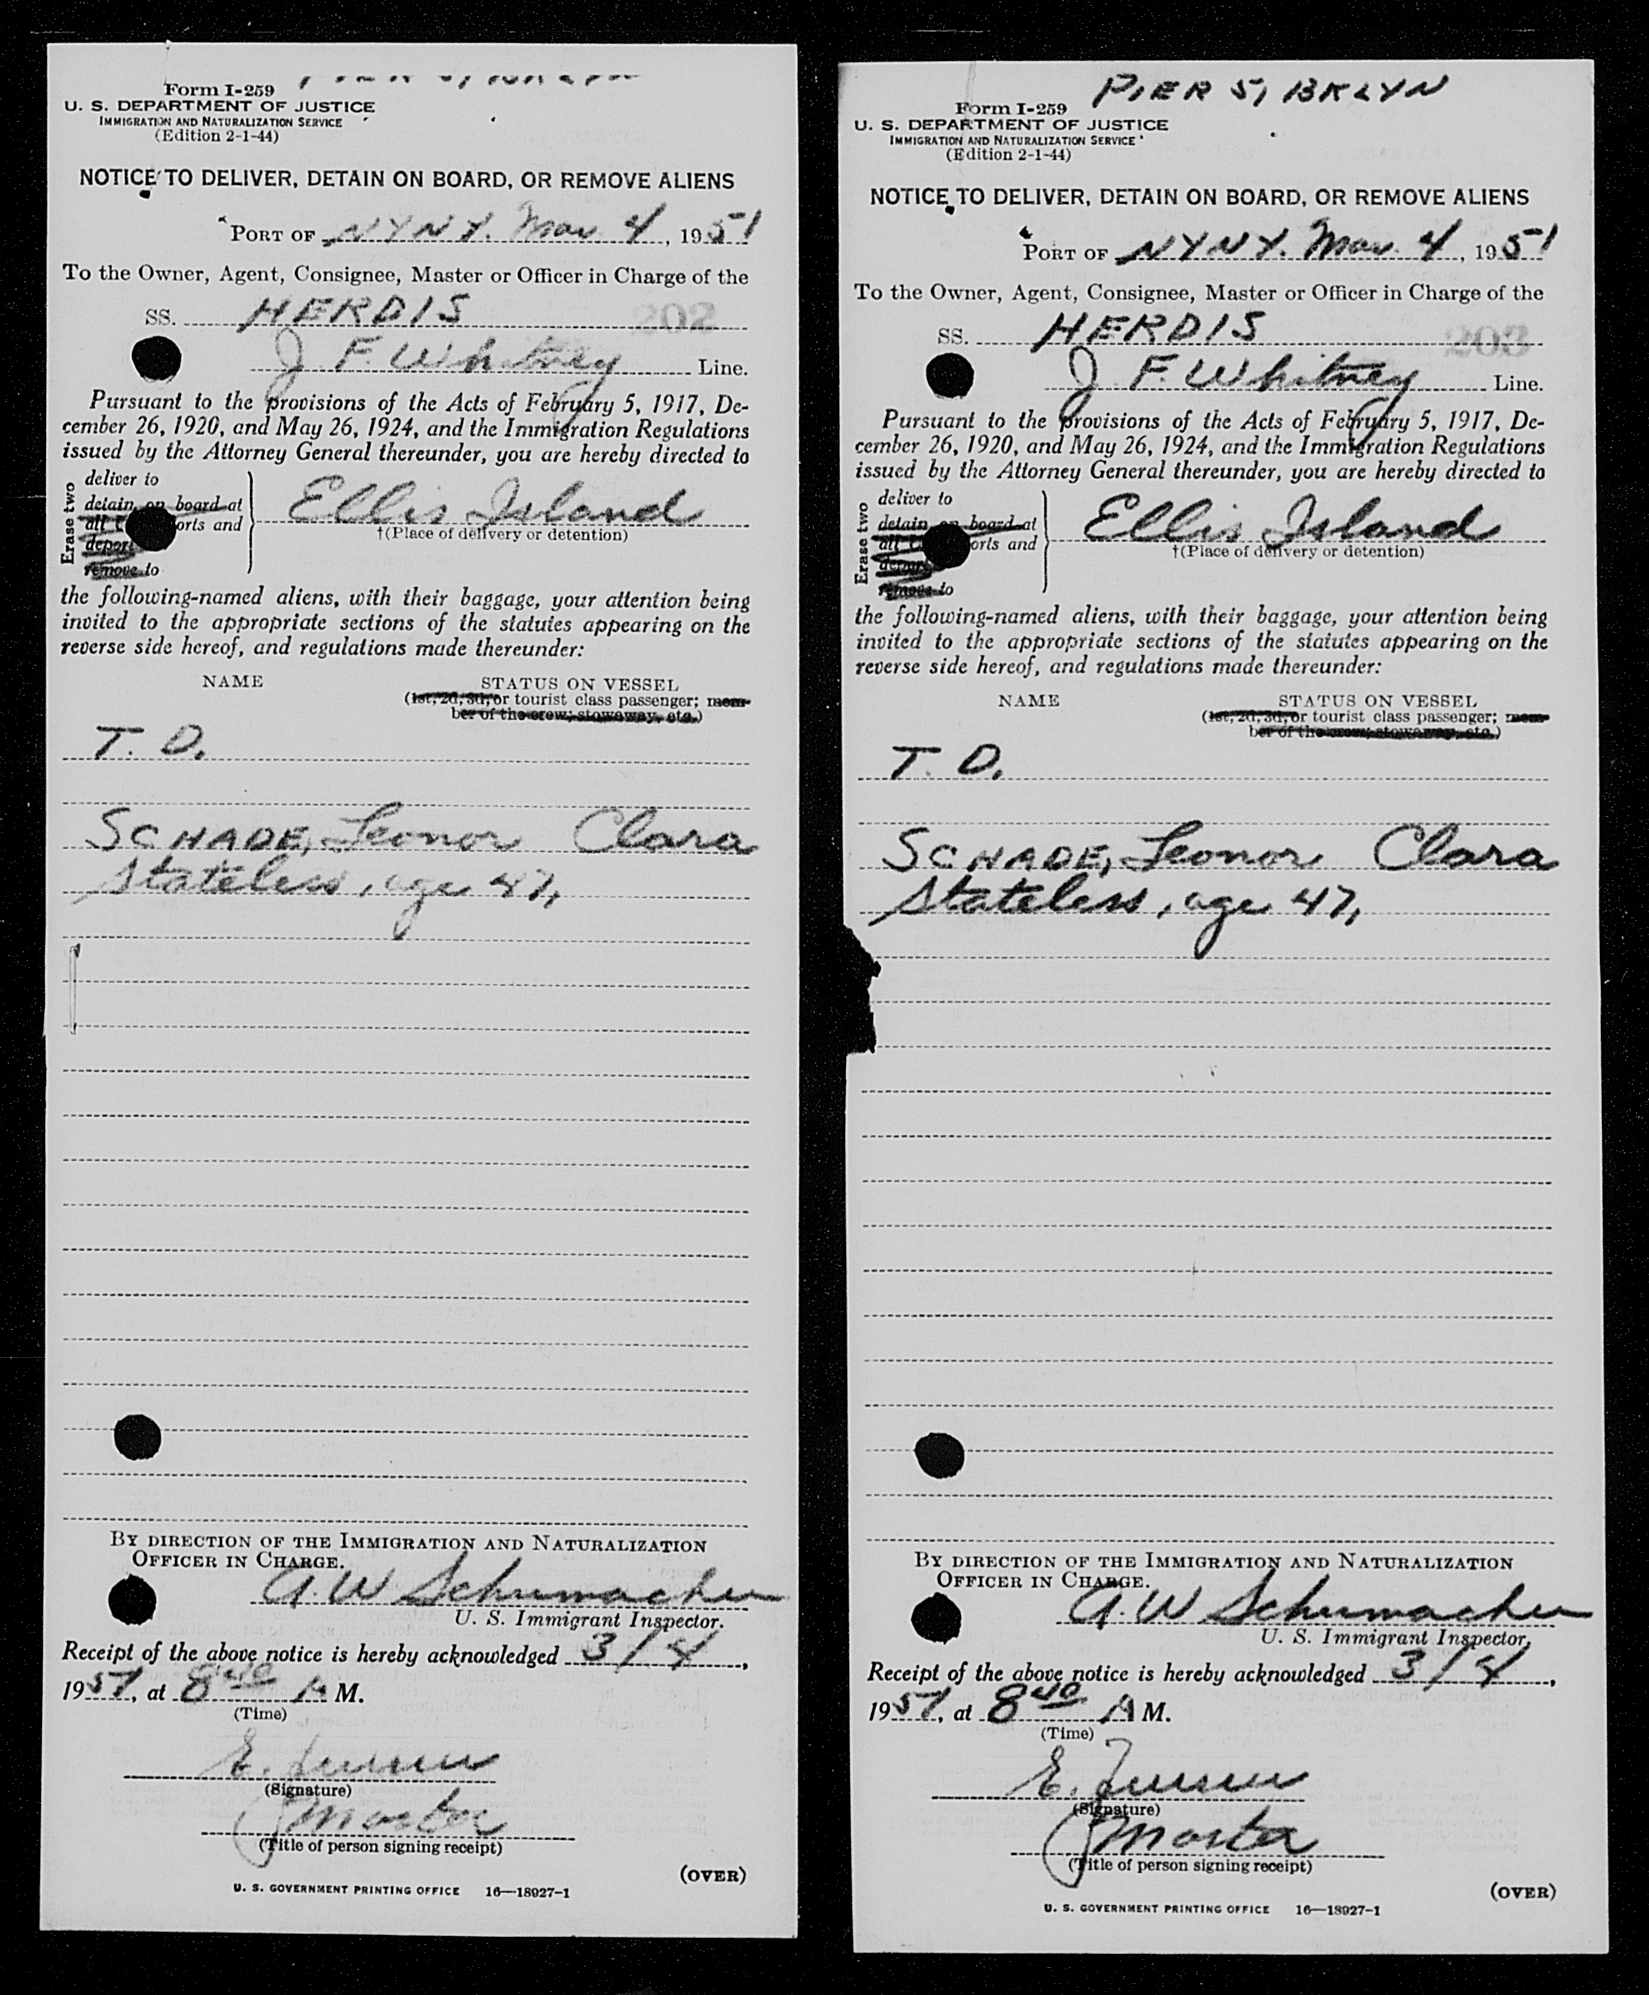 Form I-259
U. S. DEPARTMENT OF JUSTICE
IMMIGRATION AND NATURALIZATION SERVICE
(Edition 2-1-44)
NOTICE TO DELIVER, DETAIN ON BOARD, OR REMOVE ALIENS
PORT OF NYNY. Mar 4, 1951
To the Owner, Agent, Consignee, Master or Officer in Charge of the
SS. HERDIS 203
J. F. Whitney Line.
Pursuant to the provisions of the Acts of February 5, 1917, De-
cember 26, 1920, and May 26, 1924, and the Immigration Regulations
issued by the Attorney General thereunder, you are hereby directed to
Erase two
deliver to
detain on board at
all orts and
deport
remove to
Ellis Island
†(Place of delivery or detention)
the following-named aliens, with their baggage, your attention being
invited to the appropriate sections of the statutes appearing on the
reverse side hereof, and regulations made thereunder:
NAME STATUS ON VESSEL
(1st, 2d, 3d, or tourist class passenger; mem-
ber of the crew; stowaway, etc.)
T. D.
SCHADE, Leonor Clara
Stateless, age 47,
BY DIRECTION OF THE IMMIGRATION AND NATURALIZATION
OFFICER IN CHARGE.
A. W Schumacher
U. S. Immigrant Inspector.
Receipt of the above notice is hereby acknowledged 3/4,
1951, at 8 40 A M.
(Time)
E.
(Signature)
Master
(Title of person signing receipt)
(OVER)
U. S. GOVERNMENT PRINTING OFFICE 16—18927-1
PIER 5, BKLYN
Form I-259
U. S. DEPARTMENT OF JUSTICE
IMMIGRATION AND NATURALIZATION SERVICE
(Edition 2-1-44)
NOTICE TO DELIVER, DETAIN ON BOARD, OR REMOVE ALIENS
PORT OF NYNY. Mar. 4, 1951
To the Owner, Agent, Consignee, Master or Officer in Charge of the
SS. HERDIS 203
J. F. Whitney Line.
Pursuant to the provisions of the Acts of February 5, 1917, De-
cember 26, 1920, and May 26, 1924, and the Immigration Regulations
issued by the Attorney General thereunder, you are hereby directed to
Erase two
deliver to
detain on board at
all orts and
deport
remove to
Ellis Island
†(Place of delivery or detention)
the following-named aliens, with their baggage, your attention being
invited to the appropriate sections of the statutes appearing on the
reverse side hereof, and regulations made thereunder:
NAME STATUS ON VESSEL
(1st, 2d, 3d, or tourist class passenger; mem-
ber of the crew; stowaway, etc.)
T. D.
SCHADE, Leonor Clara
Stateless, age 47,
BY DIRECTION OF THE IMMIGRATION AND NATURALIZATION
OFFICER IN CHARGE.
A. W Schumacher
U. S. Immigrant Inspector.
Receipt of the above notice is hereby acknowledged 3/4,
1951, at 8 40 A M.
(Time)
E.
(Signature)
Master
(Title of person signing receipt)
(OVER)
U. S. GOVERNMENT PRINTING OFFICE 16—18927-1